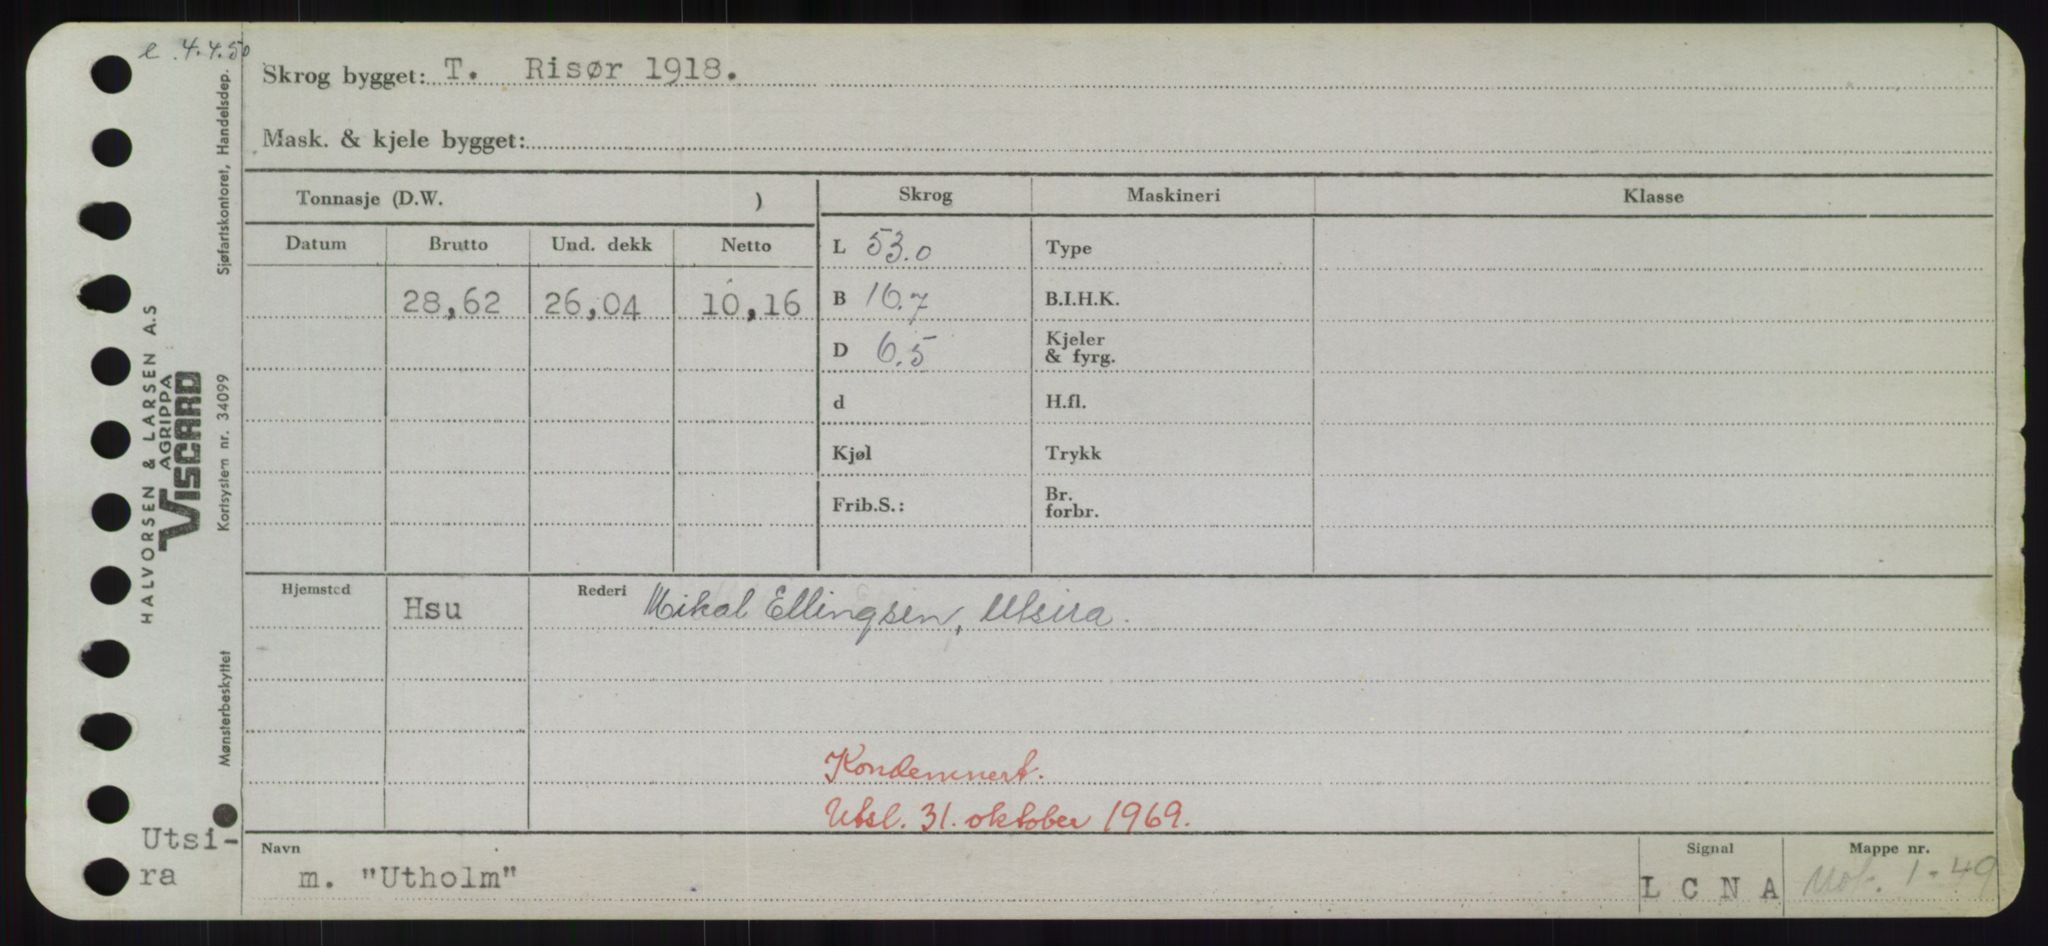 e. 4.4.50
Skrog bygget: T. Risør 1918.
Mask. & kjele bygget:
Tonnasje (D.W. )
Skrog
Maskineri
Klasse
Datum Brutto Und. dekk Netto
28,62 26,04 10,16
L 53.0
B 16.7
D 6.5
d
Kjøl
Frib.S.:
Type
B.I.H.K.
Kjeler
& fyrg.
H.fl.
Trykk
Br.
forbr.
Hjemsted Hsu Rederi Mikal Ellingsen, Utsira.
Kondemnert.
Utsl. 31. oktober 1969.
Navn
m. "Utholm"
Signal
L C N A
Mappe nr.
1-49
Utsi-
ra
HALVORSEN & LARSEN A.S
AGRIPPA
VISCARD
Mønsterbeskyttet Kortsystem nr. 34099 Sjøfartskontoret, Handelsdep.